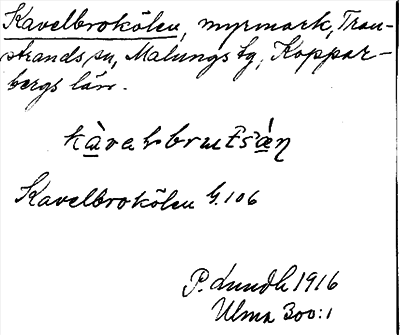 Kavelbrokölen, myrmark, Tran-
strands sn, Malungs tg, Koppar-
bergs län.
Kavelbrokölen G.106
P. Lundh 1916
Ulma 300:1